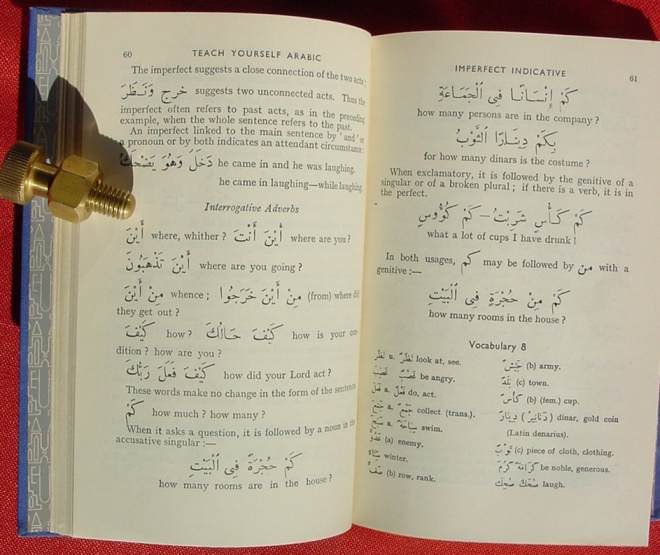 60 TEACH YOURSELF ARABIC
The imperfect suggests a close connection of the two acts:
خرج وَنَظَرَ suggests two unconnected acts. Thus the
imperfect often refers to past acts, as in the preceding
example, when the whole sentence refers to the past.
An imperfect linked to the main sentence by 'and' or
a pronoun or by both indicates an attendant circumstance:
دَخَلَ وَهُوَ يَضْحَكُ he came in and he was laughing.
he came in laughing—while laughing.
Interrogative Adverbs
أَيْنَ where, whither? أَيْنَ أَنْتَ where are you?
أَيْنَ تَذْهَبُونَ where are you going?
مِنْ أَيْنَ whence; مِنْ أَيْنَ خَرَجُوا (from) where did
they get out?
كَيْفَ how? كَيْفَ حَالُكَ how is your con-
dition? how are you?
كَيْفَ فَعَلَ رَبُّكَ how did your Lord act?
These words make no change in the form of the sentence.
كَمْ how much? how many?
When it asks a question, it is followed by a noun in the
accusative singular:—
كَمْ حُجْرَةً فِي الْبَيْتِ
how many rooms are in the house?
IMPERFECT INDICATIVE 61
كَمْ إِنْسَانًا فِي الْجَمَاعَةِ
how many persons are in the company?
بِكَمْ دِينَارًا الثَّوْبُ
for how many dinars is the costume?
When exclamatory, it is followed by the genitive of a
singular or of a broken plural; if there is a verb, it is in
the perfect.
كَمْ كَأْسٍ شَرِبْتُ – كَمْ كُؤُوسٍ
what a lot of cups I have drunk!
In both usages, كَمْ may be followed by مِنْ with a
genitive:—
كَمْ مِنْ حُجْرَةٍ فِي الْبَيْتِ
how many rooms in the house?
Vocabulary 8
نَظَرَ a. نَظَرٌ look at, see.
غَضِبَ غَضَبٌ be angry.
فَعَلَ a. فِعْلٌ do, act.
جَمَعَ a. جَمْعٌ collect (trans.).
a. سِبَاحَةٌ swim.
عَدُوٌّ (a) enemy.
شِتَاءٌ winter.
صَفٌّ (b) row, rank.
جَيْشٌ (b) army.
بَلَدٌ (c) town.
كَأْسٌ (b) (fem.) cup.
دِينَارٌ (دَنَانِيرُ) dinar, gold coin
(Latin denarius).
ثَوْبٌ (c) piece of cloth, clothing.
كَرُمَ be noble, generous.
ضَحِكَ laugh.